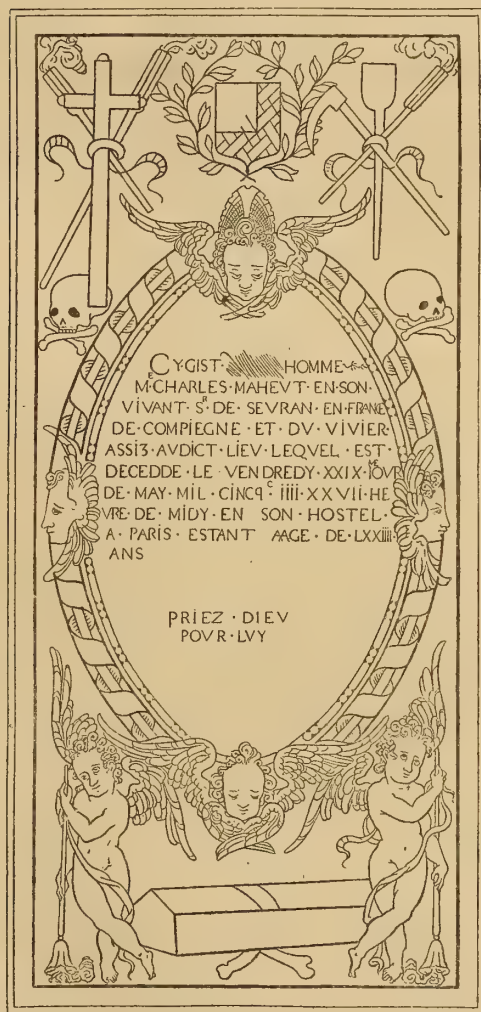 CY·GIST· HOMME
Mᴱ·CHARLES·MAHEVT·EN·SON·
VIVANT·Sᴿ·DE·SEVRAN·EN·FRANCE
DE·COMPIEGNE·ET·DV·VIVIER·
ASSIZ·AVDICT·LIEV·LEQVEL·EST·
DECEDDE·LE·VENDREDY·XXIXᴹᴱ·IOVR
DE·MAY·MIL·CINCQ·ᶜ·IIII·XXVII·HE
VRE·DE·MIDY·EN·SON·HOSTEL·
A·PARIS·ESTANT·AAGE·DE·LXXIIII·
ANS
PRIEZ·DIEV
POVR·LVY